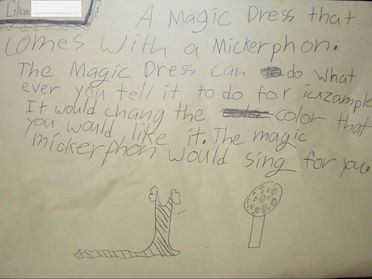 Lilian
A Magic Dress that
comes with a Mickerphon.
The Magic Dress can do what
ever you tell it to do for icxzample
It would chang the color that
you would like it. The magic
mickerphon would sing for you.